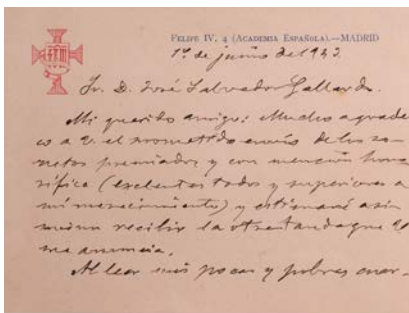 FELIPE IV, 4 (ACADEMIA ESPAÑOLA).—MADRID
1º de junio del 1943.
Sr. D. José Salvador Gallardo.
Mi querido amigo: Mucho agradez
co a V. el prometido envío de los so-
netos premiados y con mención hono
rífica (excelentes todos y superiores a
mi merecimiento) y estimaré asi-
mismo recibir la otra tanda que V.
me anuncia.
Al leer mis pocas y pobres cuar-